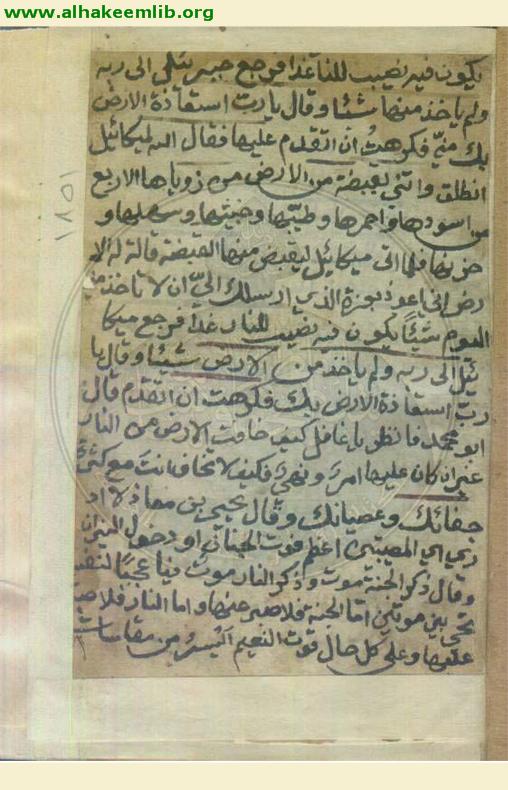 www.alhakeemlib.org
يكون فيه نصيب للنار غدا فرجع جبرئيل الى ربه
ولم ياخذ منها شيئا وقال يا رب استعاذة الارض
بك مني فكرهت ان اتقدم عليها فقال الله لميكائيل
انطلق واتني بقبضة من الارض من زوياها الاربع
من اسودها واحمرها وطيبها وخبيثها وسهلها و
حزنها فلما اتى ميكائيل ليقبض منها القبضة قالة له الا
رض اني اعوذ بعزة الذي ارسلك اليّ ان لا تاخذ مني
اليوم شيئاً يكون فيه نصيب للنار غداً فرجع ميكا
ئيل الى ربه ولم ياخذ من الارض شيئا وقال يا
رب استعاذة الارض بك فكرهت ان اتقدم قال
ابو محمد فانظر يا غافل كيف خافت الارض من النار
غير ان كان عليها امر ونهي فكيف لا تخاف انت مع كثرة
جفائك وعصيانك وقال يحيى بن معاذ لا اد
ري اي المصيبتين اعظم فوت الجنان او دخول النيران
وقال ذكر الجنة موت وذكر النار موت فيا عجبا لنفس
تحيى بين موتين اما الجنة فلا صبر عنها واما النار فلا صبر
عليها وعلى كل حال فوت النعيم ايسر من مقاسات
١٨٥١